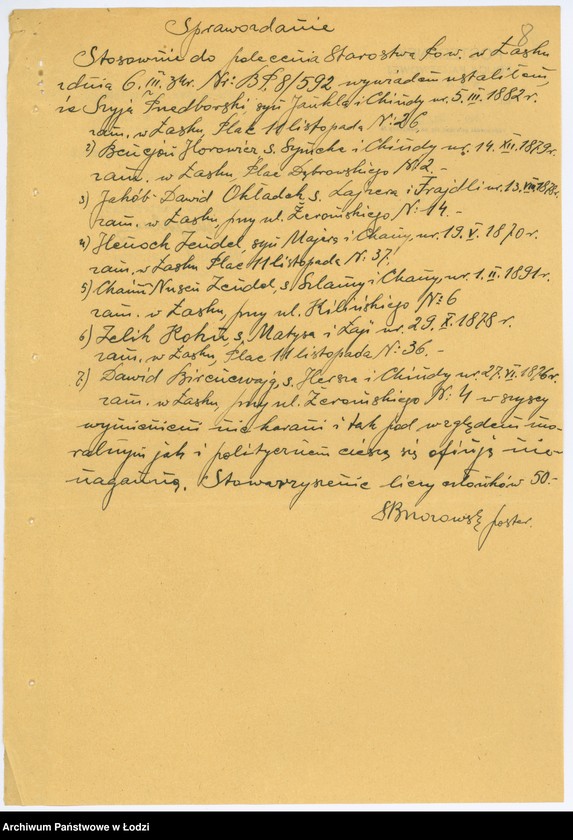 8
Sprawozdanie
Stosownie do polecenia Starostwa Pow. w Łasku
z dnia 6.III.34r. Nr: BP.8/592 wywiadem ustaliłem,
że Szyja Frydborski, syn Jankla i Chindy ur. 5.III.1882r.
zam. w Łasku, Plac 11 listopada N: 26.
2) Bencjan Horowicz s. Szymcha i Chindy ur. 14.XII.1879r.
zam. w Łasku, Plac Dąbrowskiego N: 2. -
3) Jakób Dawid Okładek s. Lajzera i Frajdli ur. 13. 1878r.
zam. w Łasku, przy ul. Żeromskiego N: 14. -
4) Henoch Zendel, syn Majera i Chany, ur. 19.V.1870r.
zam. w Łasku Plac 11 listopada N. 37.
5) Chaim Nusen Zendel, s. Szlamy i Chany, ur. 1.II.1891r.
zam. w Łasku, przy ul. Kilińskiego No 6
6) Zelik s. Matysa i ur. 29.X.1878r.
zam. w Łasku, Plac 11 listopada N: 36. -
7) Dawid s. Hersza i Chindy ur. 27.VI.1876r.
zam. w Łasku, przy ul. Żeromskiego N: 4 wszyscy
wymienieni nie karani i tak pod względem mo-
ralnym jak i politycznem cieszą się opinją nie-
naganną. Stowarzyszenie liczy członków 50.-
poster.
Archiwum Państwowe w Łodzi